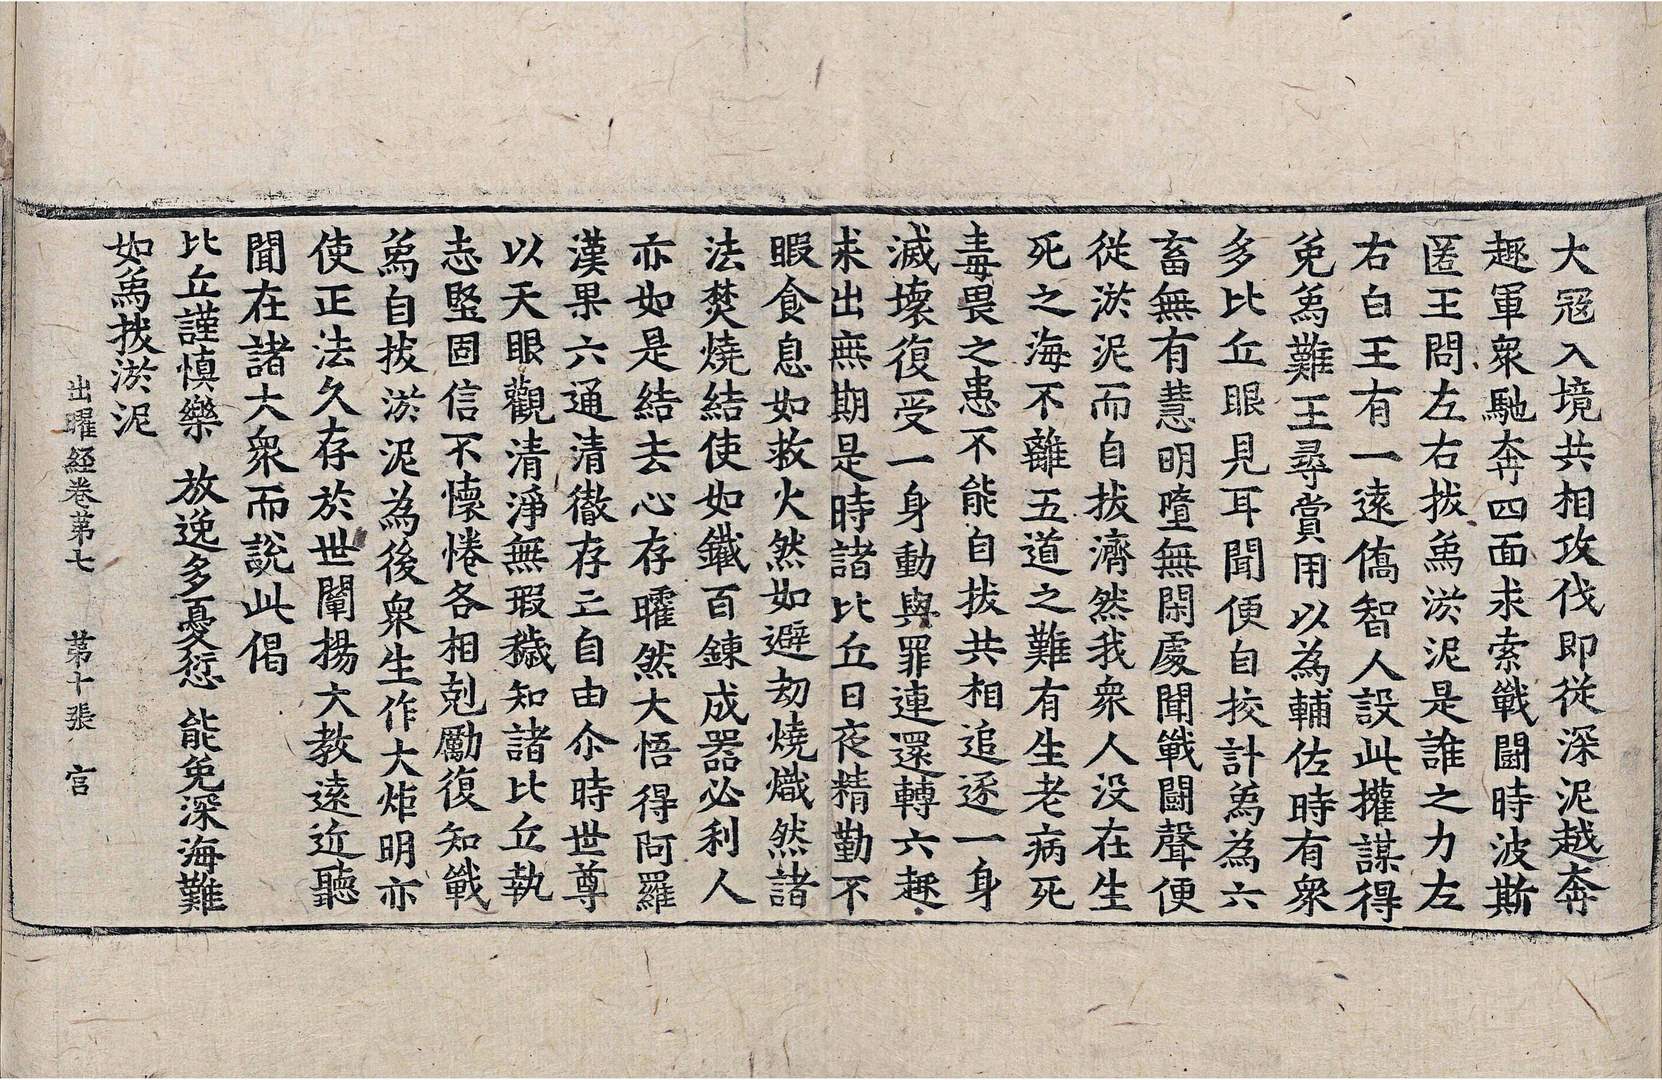 大冦入境共相攻伐即從深泥越奔
趣軍衆馳奔四面求索戰鬪時波斯
匿王問左右拔為淤泥是誰之力左
右白王有一遠僑智人設此攉謀得
免為難王尋賞用以為輔佐時有衆
多比丘眼見耳聞便自挍計為為六
畜無有慧明墮無閑處聞戰鬪聲便
從淤泥而自拔濟然我衆人没在生
死之海不離五道之難有生老病死
毒畏之患不能自拔共相追逐一身
滅壞復受一身動與罪連還轉六趣
求出無期是時諸比丘日夜精勤不
暇食息如救火然如避劫燒熾然諸
法焚燒結使如鐵百錬成器必利人
亦如是結去心存曜然大悟得阿羅
漢果六通清徹存亡自由尒時世尊
以天眼觀清淨無瑕穢知諸比丘執
志堅固信不懷惓各相剋勵復知戰
為自拔淤泥為後衆生作大炬明亦
使正法久存於世闡揚大教遠近聽
聞在諸大衆而說此偈
比丘謹慎樂　放逸多憂愆　能免深海難
如為拔淤泥
出曜經卷第七　第十張　宫